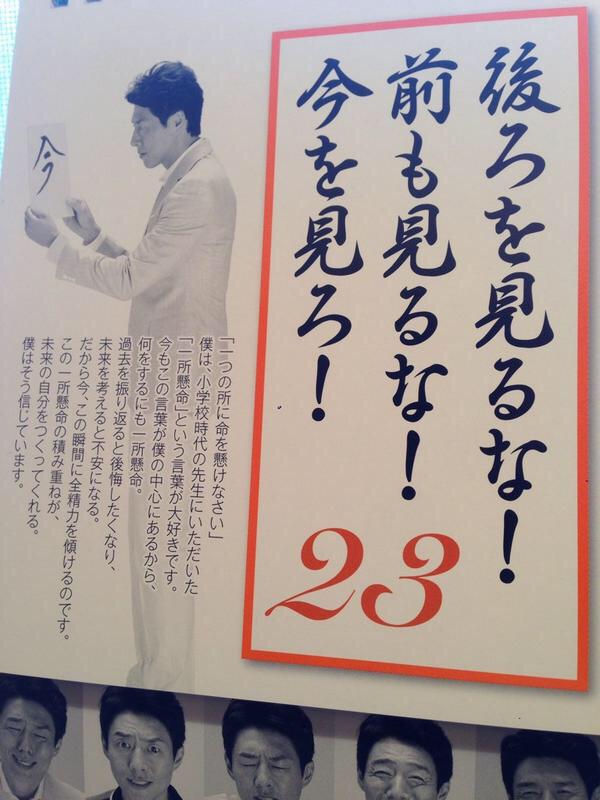 後ろを見るな！
前も見るな！
今を見ろ！
23
今
「一つの所に命を懸けなさい」
僕は、小学校時代の先生にいただいた
「一所懸命」という言葉が大好きです。
今もこの言葉が僕の中心にあるから、
何をするにも一所懸命。
過去を振り返ると後悔したくなり、
未来を考えると不安になる。
だから今、この瞬間に全精力を傾けるのです。
この一所懸命の積み重ねが、
未来の自分をつくってくれる。
僕はそう信じています。